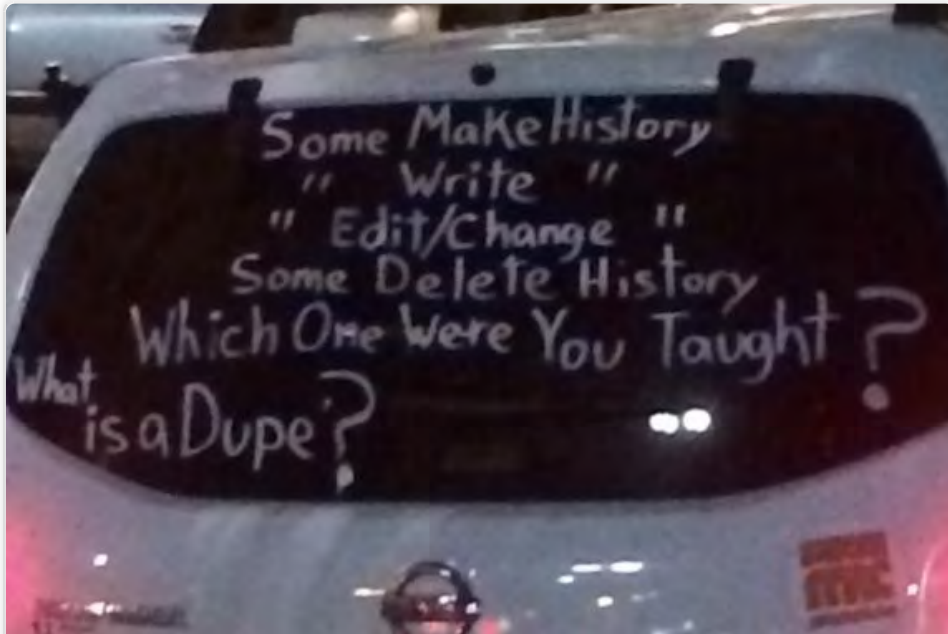 Some Make History
" Write "
" Edit/Change "
Some Delete History
Which One Were You Taught?
What
is a Dupe?